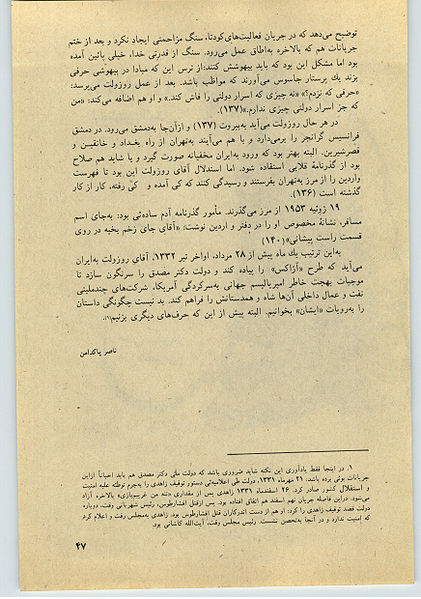 توضیح می‌دهد که در جریان فعالیت‌های کودتا، سنگ مزاحمتی ایجاد نکرد و بعد از ختم
جریانات هم که بالاخره به‌اطاق عمل می‌رود. سنگ از قدرتی خدا، خیلی پائین آمده
بود اما مشکل این بود که باید بیهوشش کنند: از ترس این که مبادا در بیهوشی حرفی
بزند یك پرستار جاسوس می‌آورند که مواظب باشد. بعد از عمل روزولت می‌پرسد:
«حرفی که نزدم؟» «نه چیزی که اسرار دولتی را فاش کند.» و او هم اضافه می‌کند: «من
که جز اسرار دولتی چیزی ندارم.» (۱۳۷).
در هر حال روزولت می‌آید به‌بیروت (۱۳۷) و ازآن‌جا به‌دمشق می‌رود. در دمشق
فرانسیس گرانجر را برمی‌دارد و با هم می‌آیند به‌تهران از راه بغداد و خانقین و
قصرشیرین. البته بهتر بود که ورود به‌ایران مخفیانه صورت گیرد و یا شاید هم صلاح
بود از گذرنامهٔ قلابی استفاده شود. اما استدلال آقای روزولت این بود تا فهرست
واردین را از مرز به‌تهران بفرستند و رسیدگی کنند که کی آمده و کی رفته، کار از کار
گذشته است (۱۳۶).
۱۹ ژوئیه ۱۹۵۳ از مرز می‌گذرند. مأمور گذرنامه آدم ساده‌ئی بود: به‌جای اسم
مسافر، نشانهٔ مخصوص او را در دفتر و اردین نوشت: «آقای جای زخم بخیه در روی
قسمت راست پیشانی» (۱۴۰)
به‌این ترتیب یك ماه پیش از ۲۸ مرداد، اواخر تیر ۱۳۳۲، آقای روزولت به‌ایران
می‌آید که طرح «آژاکس» را پیاده کند و دولت دکتر مصدق را سرنگون سازد تا
موجبات بهجت خاطر امپریالیسم جهانی به‌سرکردگی آمریکا، شرکت‌های چندملیتی
نفت و عمال داخلی آن‌ها شاه و همدستانش را فراهم کند. بد نیست چگونگی داستان
را به‌روایات «ایشان» بخوانیم. البته پیش از این که حرف‌های دیگری بزنیم(۱).
ناصر پاکدامن
۱. در اینجا فقط یادآوری این نکته شاید ضروری باشد که دولت ملی دکتر مصدق هم باید احیاناً ازاین
جریانات بوئی برده باشد. ۲۱ مهرماه ۱۳۳۱، دولت طی اعلامیه‌ئی دستور توقیف زاهدی را به‌جرم توطئه علیه امنیت
و استقلال کشور صادر کرد. ۲۶ اسفندماه ۱۳۳۱ زاهدی پس از مقداری «ننه من غریبم‌بازی» بالاخره آزاد
می‌شود. دراین فاصله جریان نهم اسفند هم اتفاق افتاده بود. پس ازقتل افشارطوس، رئیس شهربانی وقت، دوباره
دولت قصد توقیف زاهدی را کرد: او هم از دست اندرکاران قتل افشارطوس بود. زاهدی به‌مجلس رفت و اعلام کرد
که امنیت ندارد و در آنجا به‌تحصن نشست. رئیس مجلس وقت، آیت‌الله کاشانی بود.
۴۷